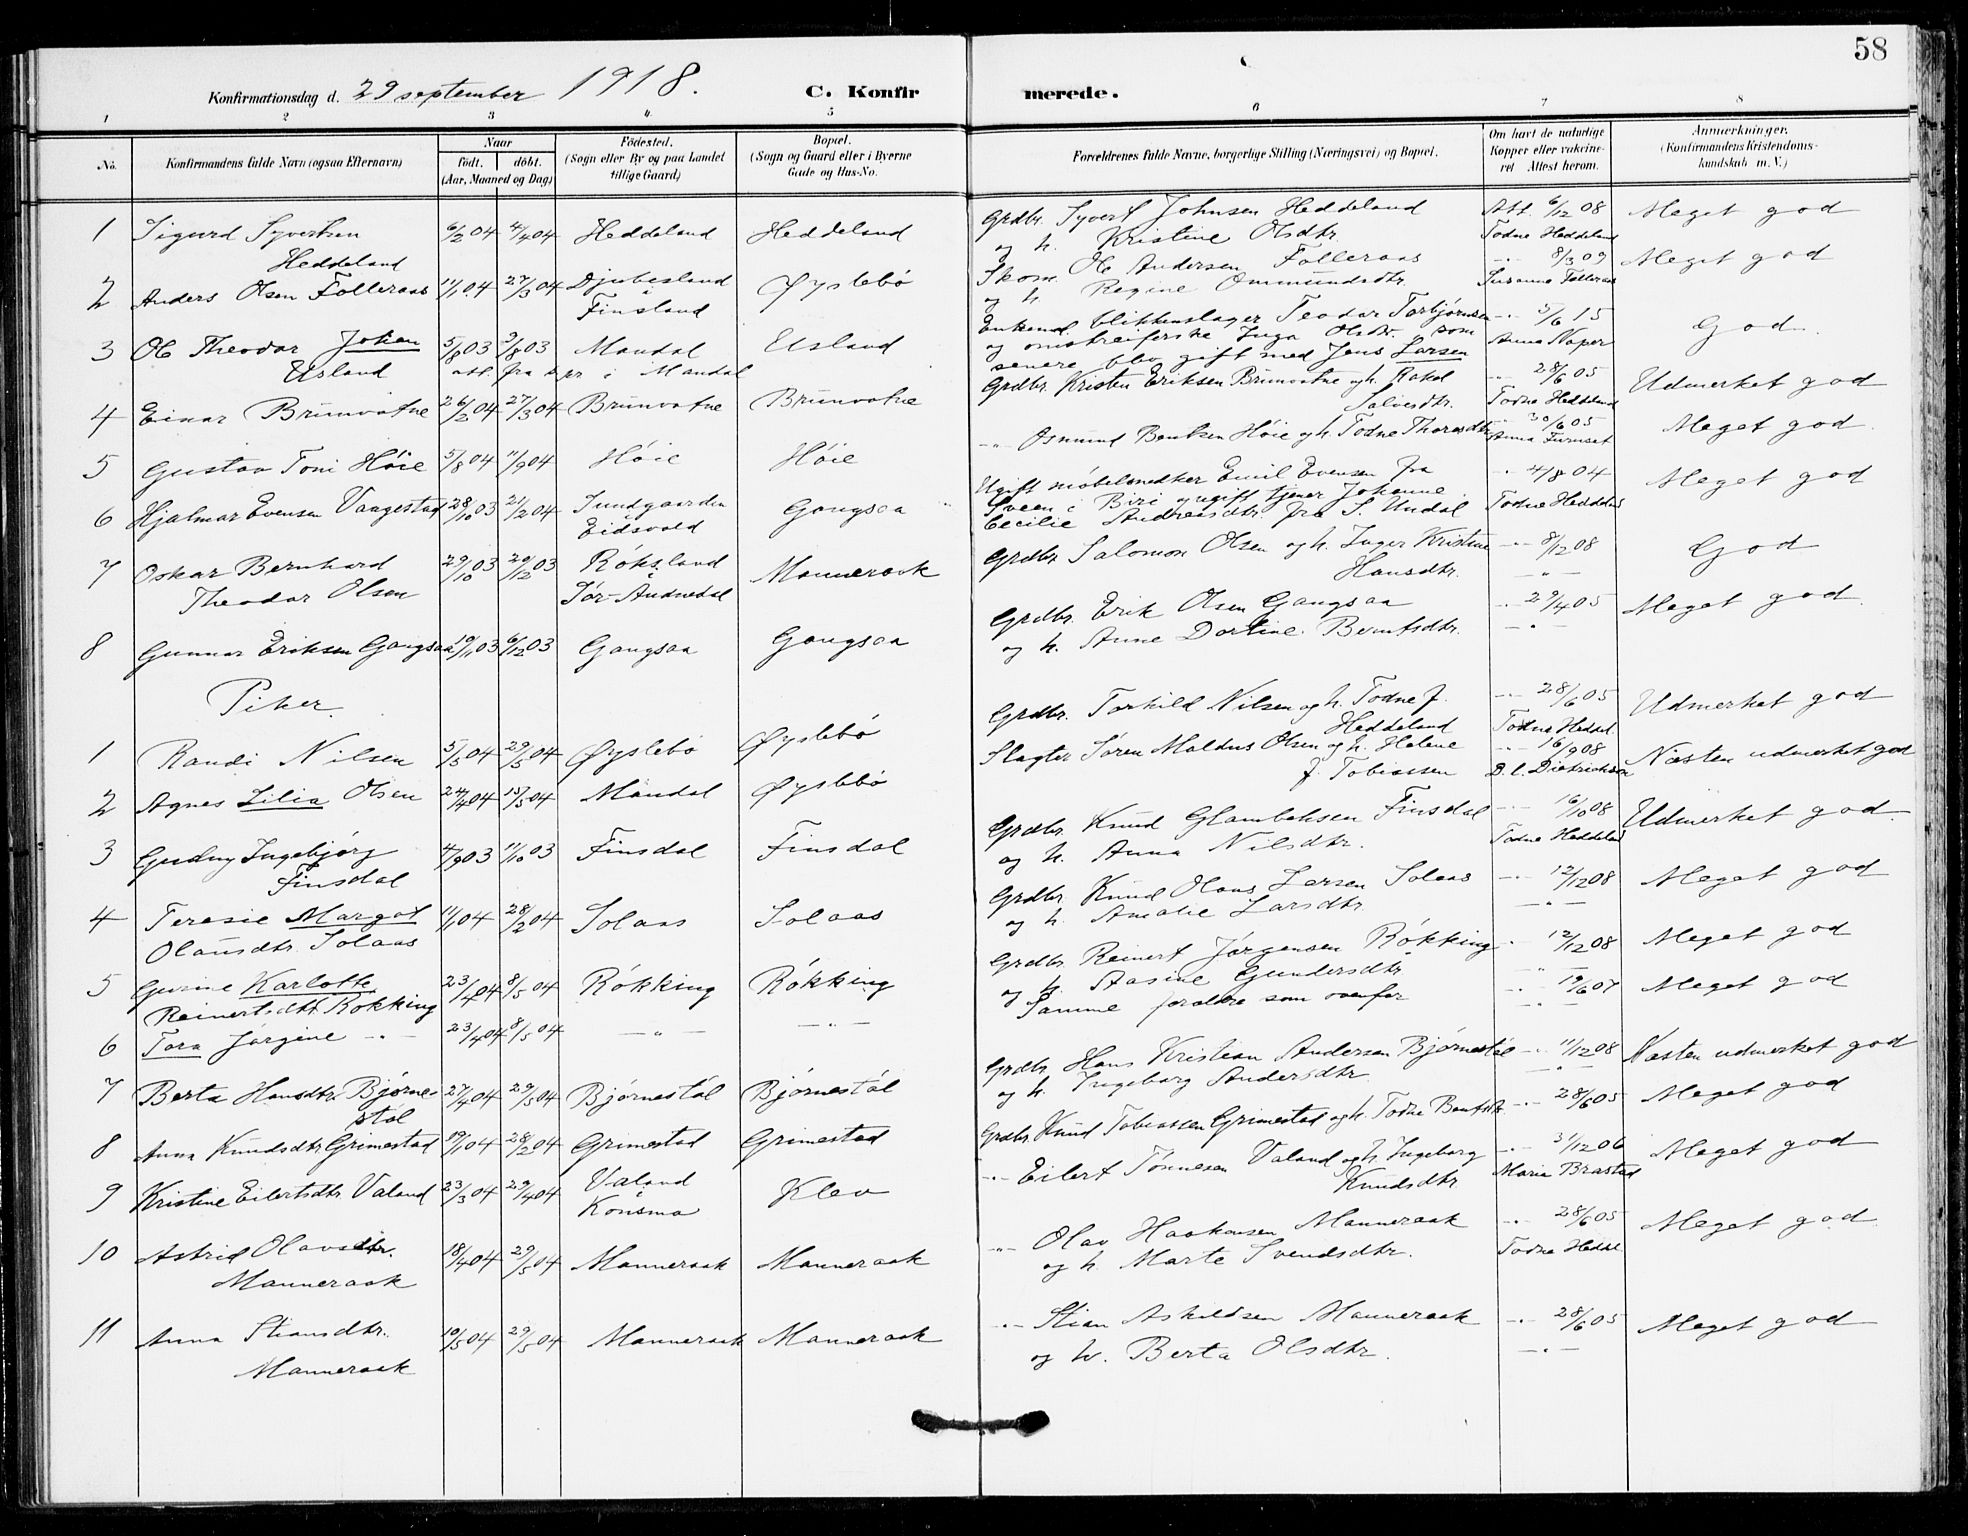 58
Konfirmationsdag d. 29 september 1918. C. Konfir merede.
1 2 3 4. 5 6 7 8
No. Konfirmandens fulde Navn (ogsaa Efternavn) Naar født. døbt. (Aar, Maaned og Dag) Födested. (Sogn eller By og paa Landet tillige Gaard) Bopæl. (Sogn og Gaard eller i Byerne Gade og Hus-No. Forældrenes fulde Navne, borgerlige Stilling (Næringsvei) og Bopæl. Om havt de naturlige Kopper eller vaccineret Attest herom. Anmerkninger. (Konfirmandens Kristendomskundskab m. V.)
1 Sigurd Syvertsen Heddeland 6/2 04 4/4 04 Heddeland Heddeland Grdbr. Syvert Johnsen Heddeland og h. Kristine Olsdtr. Att. 6/12 08 Todne Heddeland Meget god
2 Anders Olsen Folleraas 11/1 04 27/3 04 Djubesland i Finsland Øyslebø Skom. Ole Andersen Folleraas og h. Regine Ommundsdtr. -"- 8/3 09 Susanne Folleraas Meget god
3 Ole Theodor Johan Usland 5/8 03 9/8 03 att. fra s.pr. i Mandal Mandal Usland Enkem. blikkenslager Teodor Torbjørnsen og omstreiferske Inga Olsdtr. som senere blev gift med Jens Larsen -"- 5/6 15 Anna Noper God.
4 Einar Brunvatne 26/2 04 27/3 04 Brunvatne Brunvatne Grdbr. Kristen Eriksen Brunvatne og h. Rakel Salvesdtr. -"- 28/6 05 Todne Heddeland Udmerket god
5 Gustav Toni Høie 5/8 04 11/9 04 Høie Høie -"- Osmund Bentsen Høie og h. Todne Thoresdtr -"- 30/6 05 Anna Furuset Meget god.
6 Hjalmar Evensen Vangestad 28/10 03 21/2 04 Sundgaarden Eidsvold Gangsaa Ugift møbelsnedker Emil Evensen fra Sveen i Biri og ugift tjener Johanne Cecilie Andreasdtr. fra S. Undal -"- 4/8 04 Todne Heddeland Meget god
7 Oskar Bernhard Theodor Olsen 29/10 03 20/12 03 Røksland Sør-Audnedal Manneraak Grdbr. Salomon Olsen og h. Inger Kristine Hansdtr. -"- 8/12 08 -"- God
8 Gunnar Eriksen Gangsaa 19/11 03 6/12 03 Gangsaa Gangsaa Grdbr. Erik Olsen Gangsaa og h. Anne Dortine Berntsdtr. -"- 29/4 05 -"- Meget god
Piker.
1 Randi Nilsen 5/5 04 29/5 04 Øyslebø Øyslebø Grdbr. Torkild Nilsen og h. Todne f. Heddeland -"- 28/6 05 Todne Heddel. Udmerket god
2 Agnes Lilia Olsen 24/4 04 15/5 04 Mandal Øyslebø Slagter Søren Maldus Olsen og h. Helene f. Tobiassen -"- 16/9 08 D. C. Dietrichson Næsten udmerket god
3 Gudny Ingebjørg Finsdal 4/9 03 11/10 03 Finsdal Finsdal Grdbr. Knud Glambeksen Finsdal og h. Anna Nilsdtr. -"- 16/10 08 Todne Heddeland Udmerket god.
4 Teresie Margot Olausdtr. Solaas 11/1 04 28/2 04 Solaas Solaas Grdbr. Knud Olaus Larsen Solaas og h. Amalie Larsdtr. -"- 12/12 08 -"- Meget god
5 Gurine Karlotte Reinertsdtr Røkking 23/4 04 8/5 04 Røkking Røkking Grdbr. Reinert Jørgensen Røkking og h. Aasine Gundersdtr -"- 12/12 08 -"- Meget god
6 Tora Jørgine -"- 23/4 04 8/5 04 -"- -"- Samme foreldre som ovenfor -"- 19/6 07 -"- Meget god
7 Berta Hansdtr Bjørnestøl 27/4 04 29/5 04 Bjørnestøl Bjørnestøl Grdbr. Hans Kristian Andersen Bjørnestøl og h. Ingeborg Andersdtr. -"- 11/12 08 -"- Næsten udmerket god
8 Anna Knudsdtr Grimestad 19/1 04 28/2 04 Grimestad Grimestad Grdbr. Knud Tobiassen Grimestad og h. Todne Bentsdtr -"- 28/6 05 Meget god
9 Kristine Eilertsdtr Valand 23/3 04 29/4 04 Valand i Konsmo Klev -"- Eilert Tønnesen Valand og h. Ingeborg Knudsdtr -"- 31/12 06 Maria Brastad Meget god
10 Astrid Olavsdtr. Manneraak 18/4 04 29/5 04 Manneraak Manneraak -"- Olav Haakonsen Manneraak og h. Marte Svendsdtr. -"- 28/6 05 Todne Heddel. Meget god.
11 Anna Stiansdtr. Manneraak 10/5 04 29/5 04 Manneraak Manneraak -"- Stian Askildsen Manneraak og h. Berta Olsdtr. -"- 28/6 05 -"- Meget god